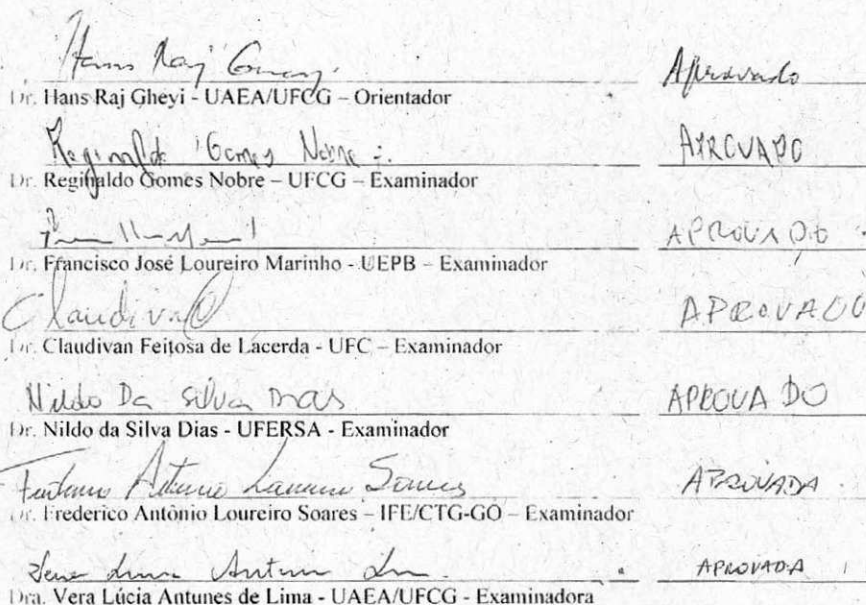 Hans Raj Gheyi. Aprovado
Dr. Hans Raj Gheyi - UAEA/UFCG – Orientador
Reginaldo Gomes Nobre APROVADO
Dr. Reginaldo Gomes Nobre – UFCG – Examinador
APROVADO
Dr. Francisco José Loureiro Marinho - UEPB – Examinador
Claudivan APROVADO
Dr. Claudivan Feitosa de Lacerda - UFC – Examinador
Nildo Da Silva Dias APROVADO
Dr. Nildo da Silva Dias - UFERSA - Examinador
Frederico Antônio Loureiro Soares APROVADA
Dr. Frederico Antônio Loureiro Soares – IFE/CTG-GO – Examinador
Vera Lúcia Antunes de Lima APROVADA
Dra. Vera Lúcia Antunes de Lima - UAEA/UFCG - Examinadora